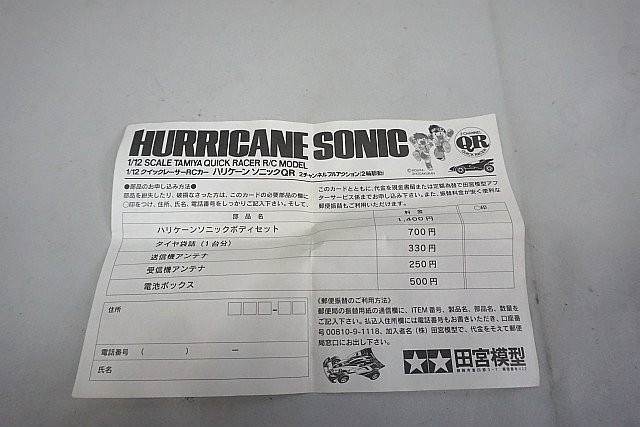 HURRICANE SONIC
1/12 SCALE TAMIYA QUICK RACER R/C MODEL
1/12 クイックレーサーRCカー ハリケーンソニックQR 2チャンネルフルアクション(2輪駆動)
2 CHANNEL
QR
QUICK RACER
●部品のお申し込み方法●
部品を紛失したり、破損なさった方は、このカードの必要部品の欄に
○印をつけ、住所、氏名、電話番号をしっかりご記入下さい。そして、
このカードとともに、代金を現金書留または定額為替で田宮模型アフ
ターサービス係までお申し込み下さい。また、振替料金が安く便利な
郵便振替もご利用いただけます。
部品名 料金 ○印
ハリケーンソニックボディセット 1,400円
タイヤ袋詰(1台分) 700円
送信機アンテナ 330円
受信機アンテナ 250円
電池ボックス 500円
住所
電話番号 ( ) ー
氏名
《郵便振替のご利用方法》
郵便局の振替用紙の通信欄に、ITEM番号、製品名、部品名、数量を
ご記入下さい。払込人住所欄には電話番号もお書きいただき、口座番
号00810-9-1118、加入者名(株)田宮模型で、代金をそえて郵便
局窓口にお出し下さい。
田宮模型